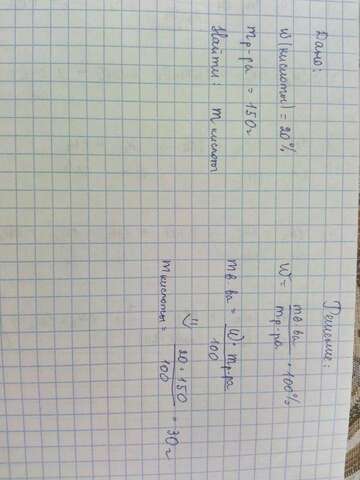 Дано:
W(кислоты) = 20%
mр-ра = 150г
Найти: m кислоты
Решение:
W = mв ва / mр-ра · 100%
mв ва = W · mр-ра / 100
mкислоты = 20 · 150 / 100 = 30г